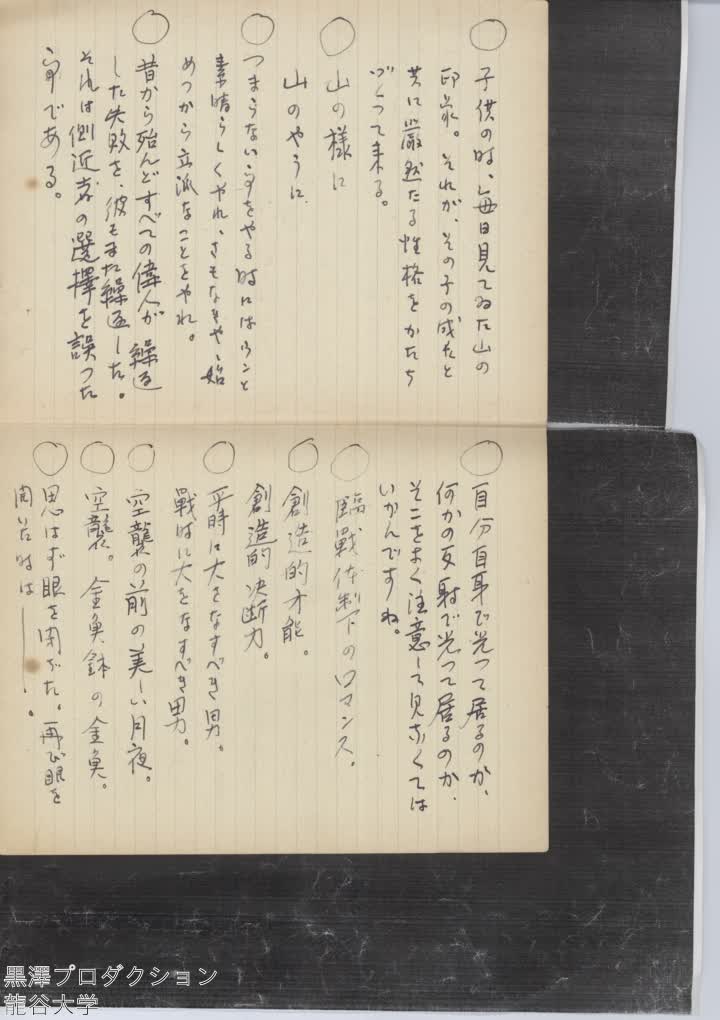 ○子供の時、毎日見てゐた山の
印象。それが、その子の成長と
共に厳然たる性格をかたち
づくつて来る。
○山の様に
山のやうに
○つまらない事をやる時にはウンと
素晴らしくやれ、さもなきや、始
めつから立派なことをやれ。
○昔から殆んどすべての偉人が繰返
した失敗を、彼もまた繰返した。
それは側近者の選擇を誤つた
事である。
○自分自身で光つて居るのか、
何かの反射で光つて居るのか、
そこをよく注意して見なくては
いかんですね。
○臨戰体制下のロマンス。
○創造的才能。
創造的決断力。
○平時に大をなすべき男。
戰時に大をなすべき男。
○空襲の前の美しい月夜。
○空襲。金魚鉢の金魚。
○思はず眼を閉ぢた。再び眼を
開いた時は——。
黒澤プロダクション
龍谷大学